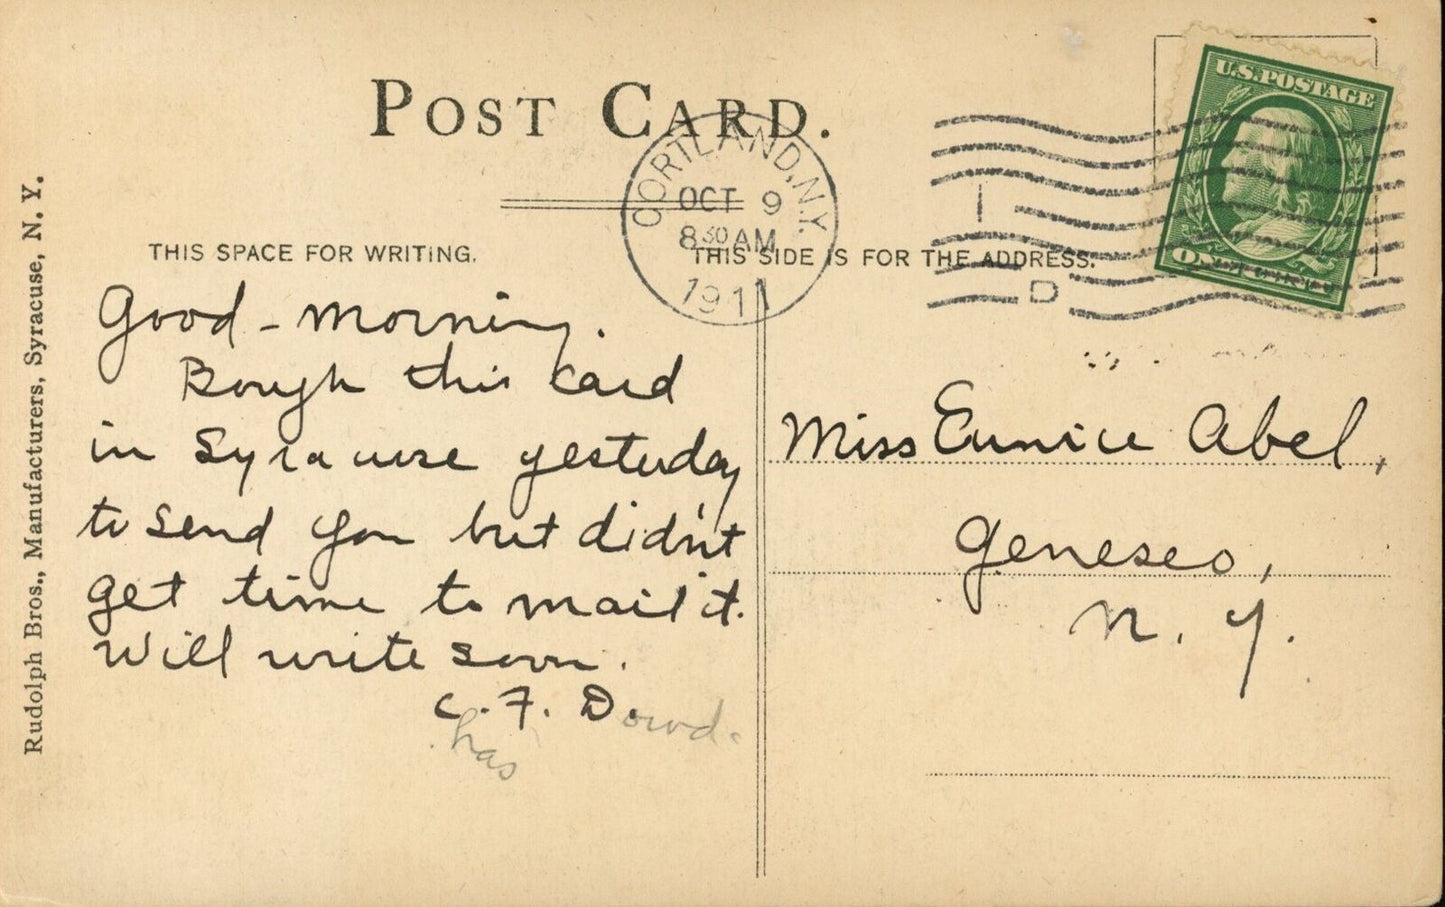 POST CARD.
CORTLAND, N.Y.
OCT 9
8 30 AM
1911
1
D
U.S. POSTAGE
THIS SPACE FOR WRITING.
THIS SIDE IS FOR THE ADDRESS.
Good - morning.
Bough this card
in Syracuse yesterday
to send you but didn't
get time to mail it.
Will write soon.
C. F. Dowd.
has
Miss Eunice Abel,
Geneseo,
N. Y.
Rudolph Bros., Manufacturers, Syracuse, N. Y.